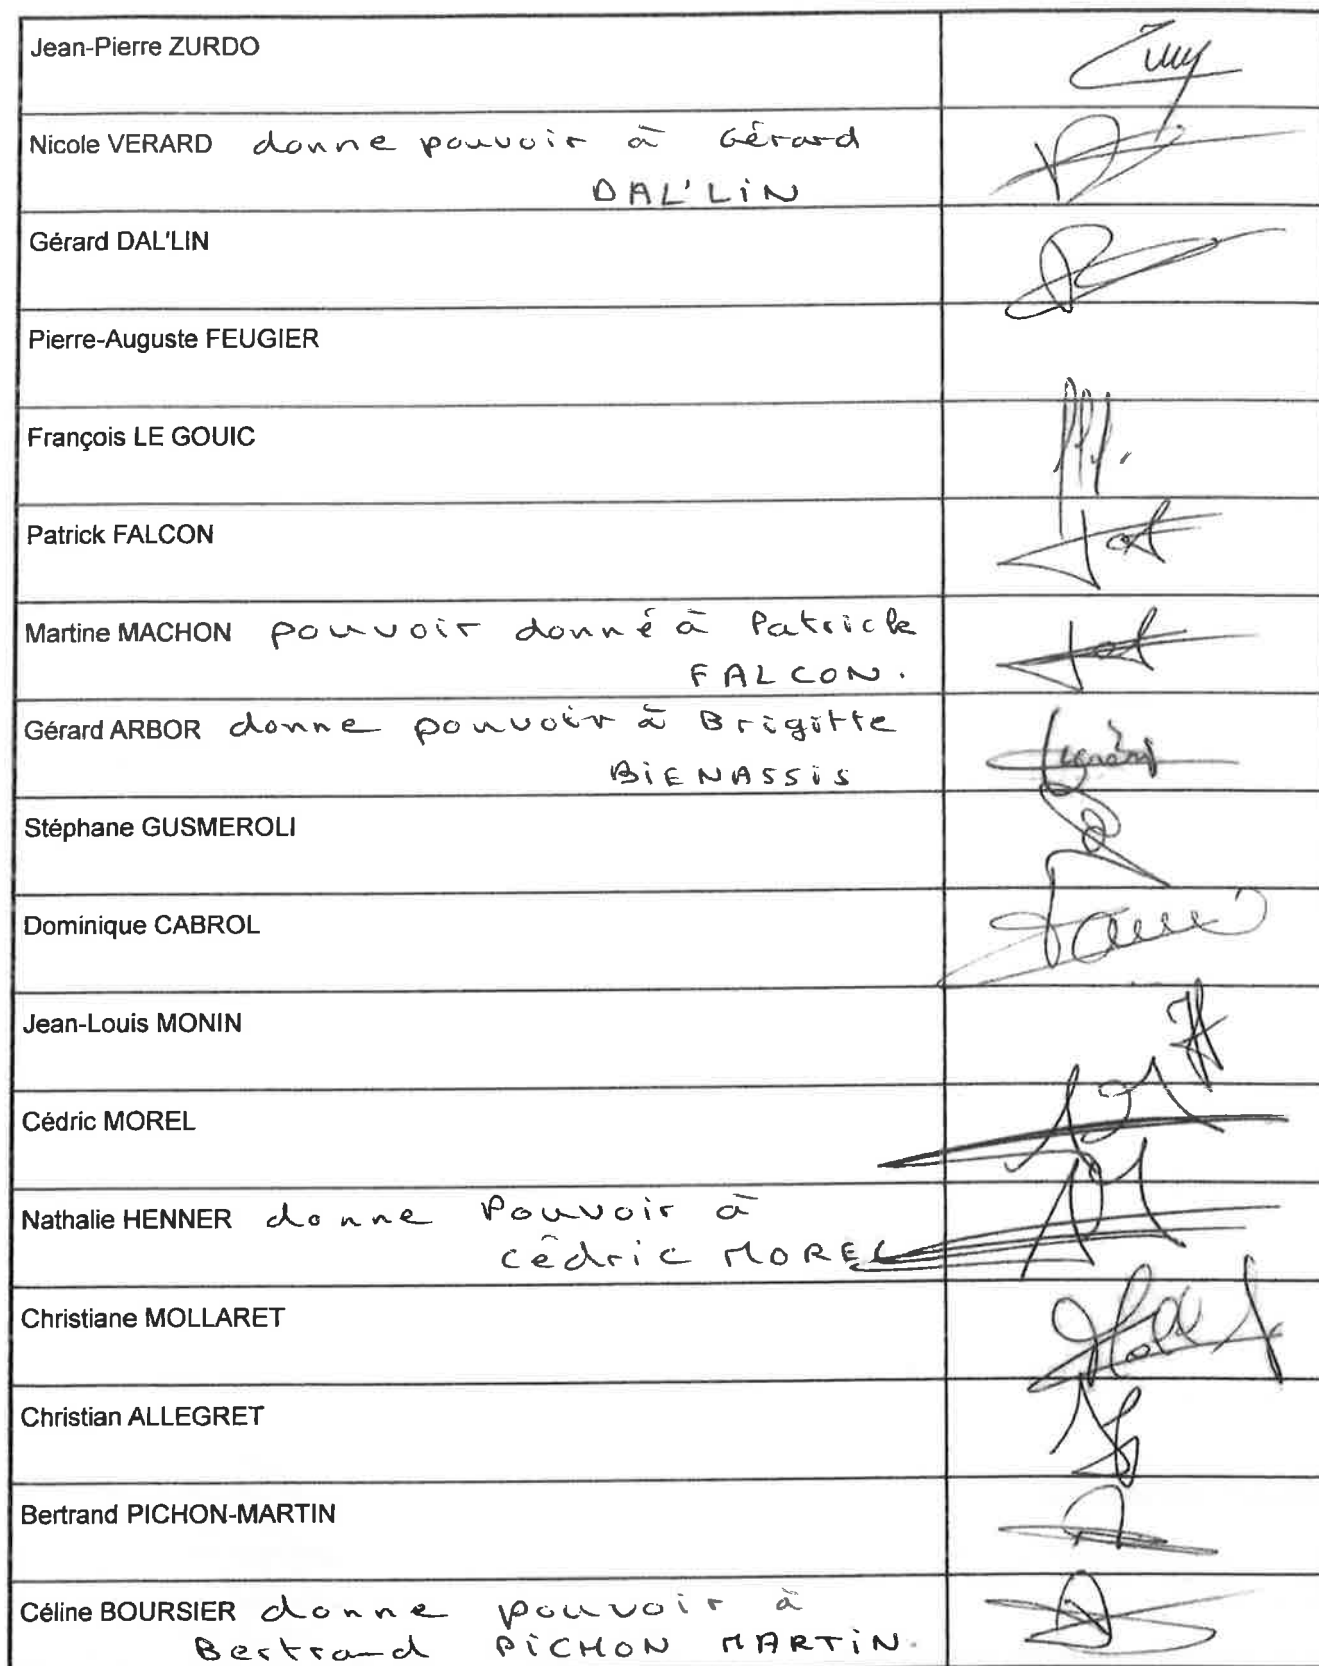 Jean-Pierre ZURDO
Nicole VERARD donne pouvoir à Gérard
DAL'LiN
Gérard DAL'LIN
Pierre-Auguste FEUGIER
François LE GOUIC
Patrick FALCON
Martine MACHON pouvoir donné à Patrick
FALCON.
Gérard ARBOR donne pouvoir à Brigitte
BiENASSiS
Stéphane GUSMEROLI
Dominique CABROL
Jean-Louis MONIN
Cédric MOREL
Nathalie HENNER donne Pouvoir à
Cédric MOREL
Christiane MOLLARET
Christian ALLEGRET
Bertrand PICHON-MARTIN
Céline BOURSIER donne pouvoir à
Bertrand PiCHON MARTiN.